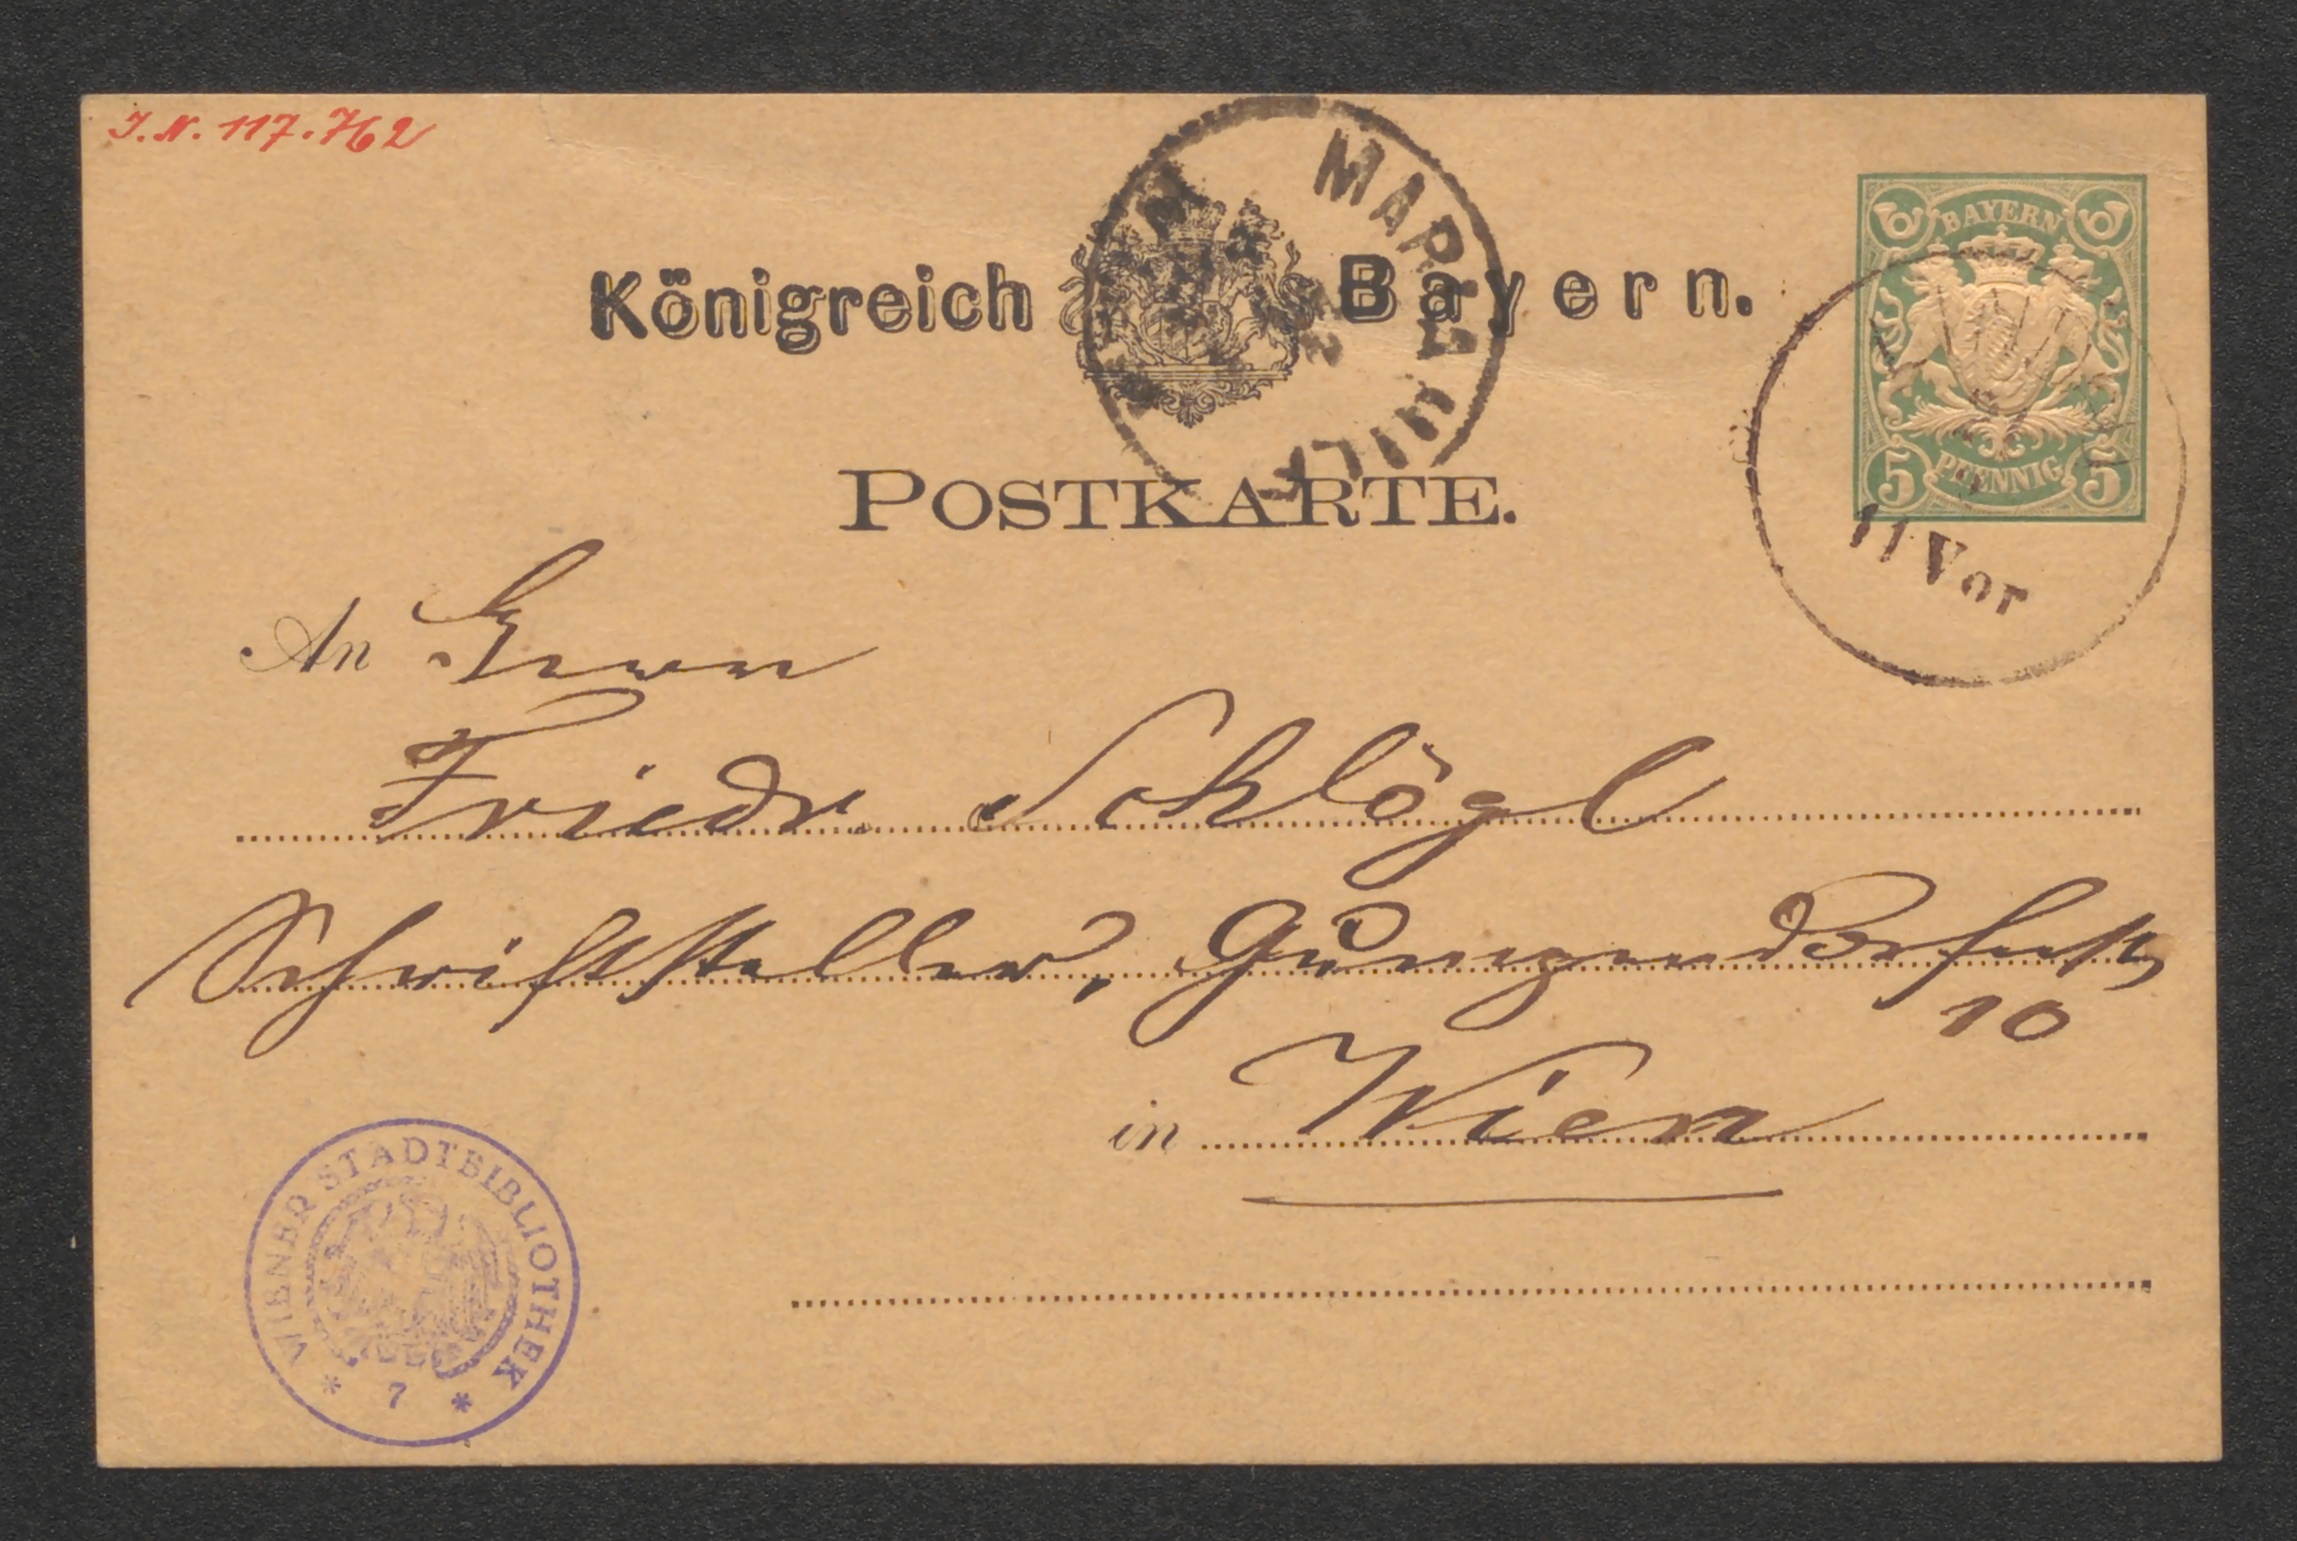 J.N. 117.762
Königreich Bayern.
MARIAHILF
BAYERN
5 PFENNIG 5
11 Vor
POSTKARTE.
An Herrn
Friedr. Schlögl
Schriftsteller, Gumpendorferstr
10
in Wien
WIENER STADTBIBLIOTHEK
* 7 *